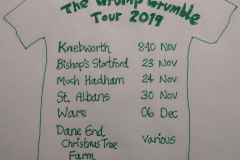 The Grump Grumble
Tour 2019
Knebworth 8+10 Nov
Bishop's Stortford 23 Nov
Much Hadham 24 Nov
St. Albans 30 Nov
Ware 06 Dec
Dane End
Christmas Tree various
Farm